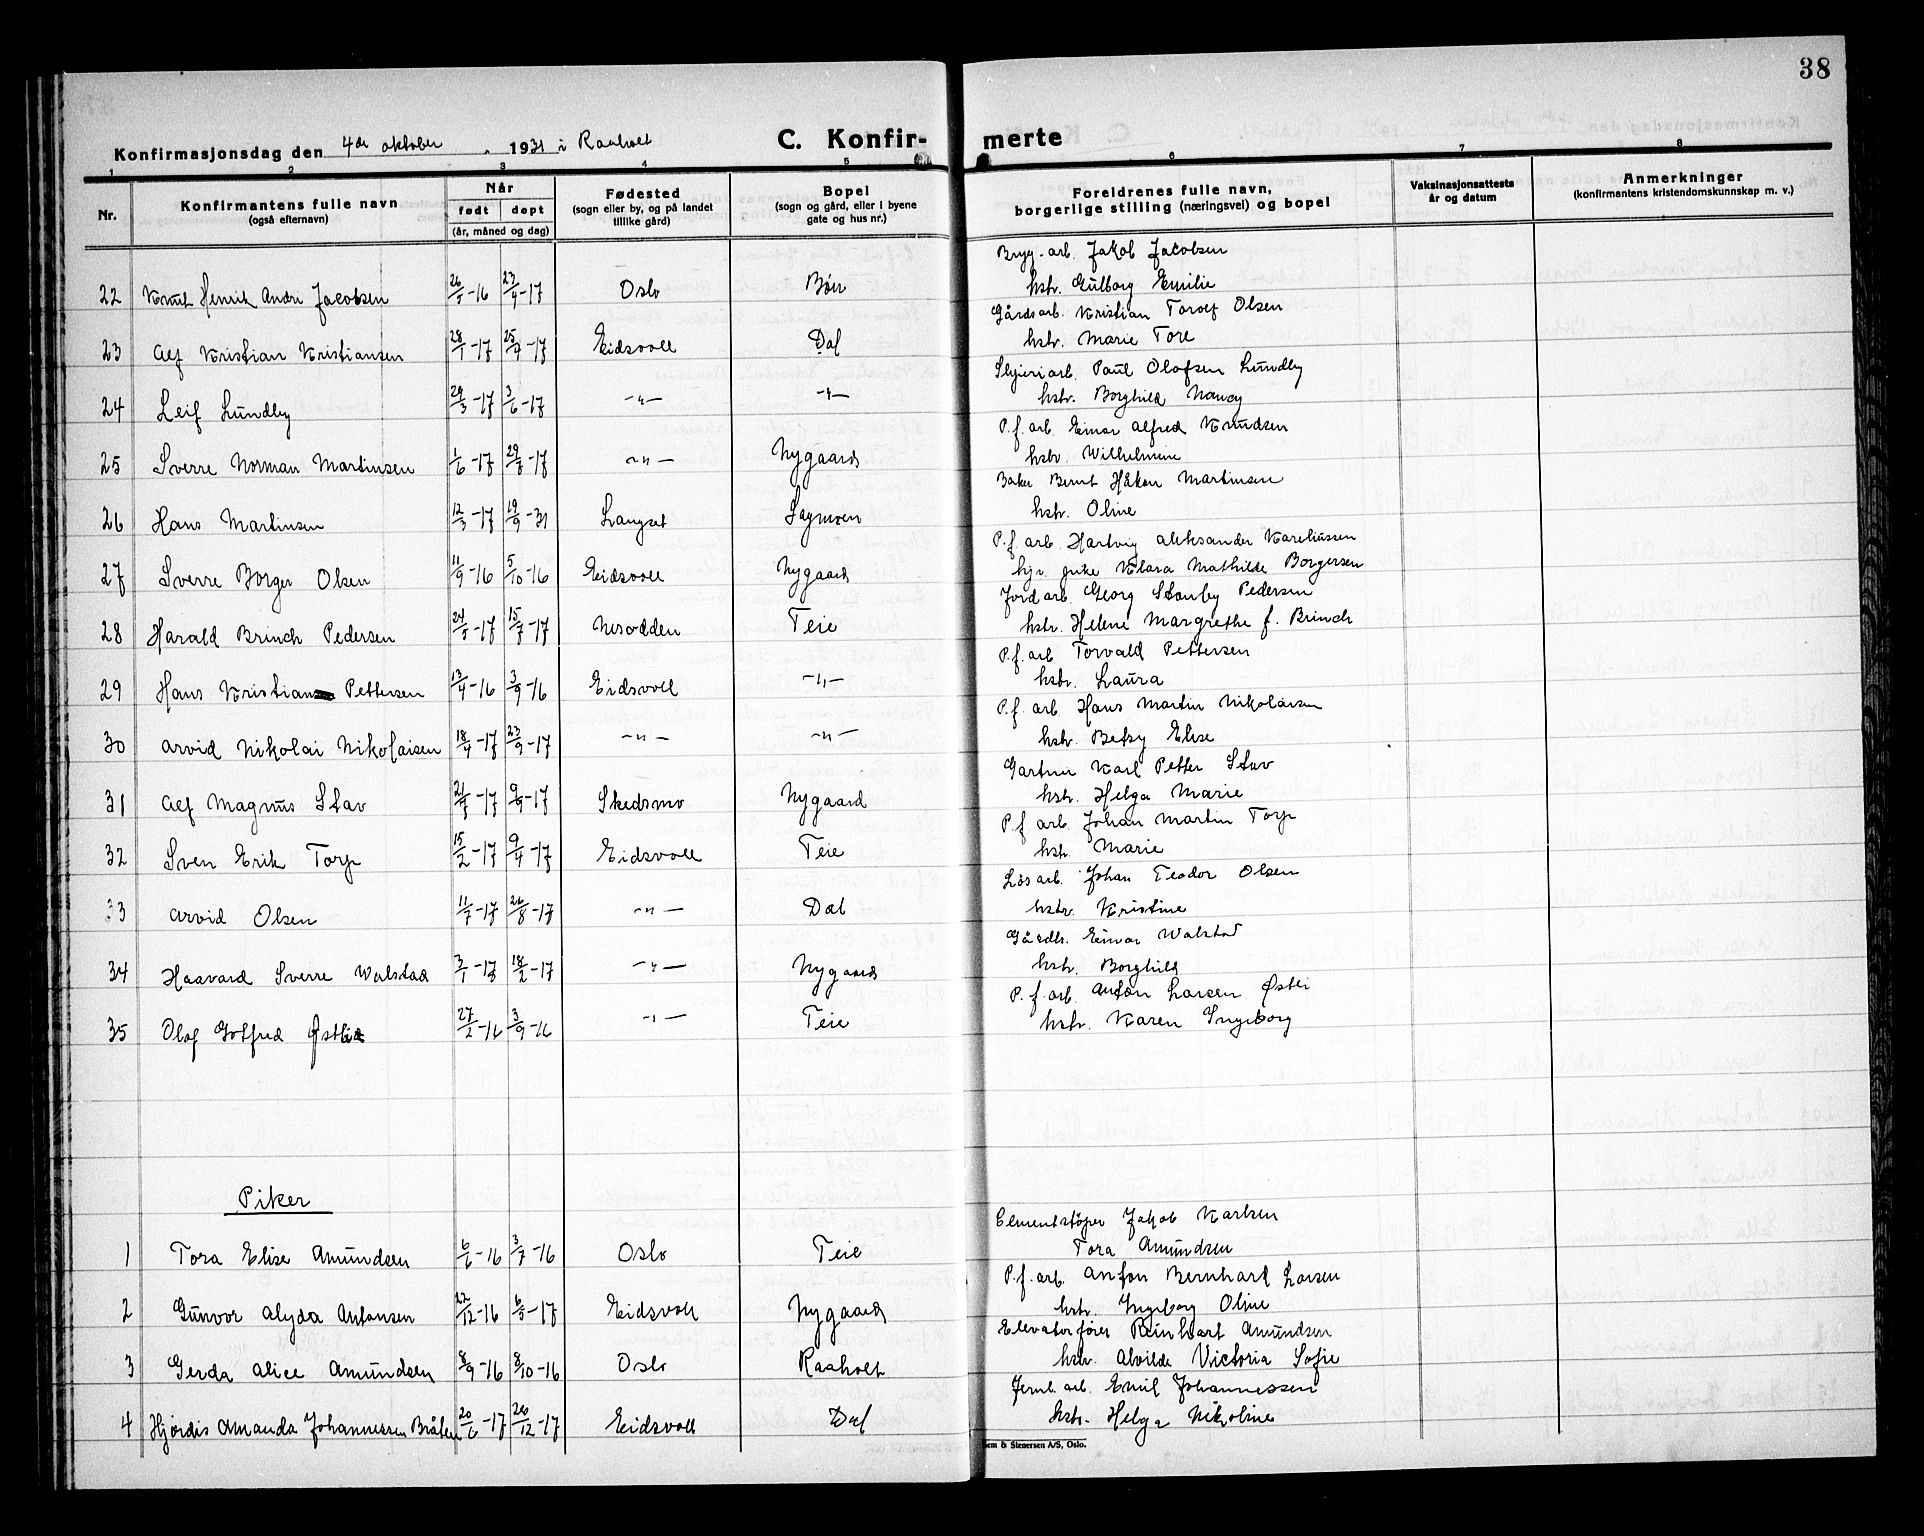 38
Konfirmasjonsdag den 4de oktober 1931 i Raaholt
C. Konfir-merte
1 2 3 4 5 6 7 8
Nr. Konfirmantens fulle navn (også efternavn) Når født døpt (år, måned og dag) Fødested (sogn eller by, og på landet tillike gård) Bopel (sogn og gård, eller i byene gate og hus nr.) Foreldrenes fulle navn, borgerlige stilling (næringsvei) og bopel Vaksinasjonsattests år og datum Anmerkninger (konfirmantens kristendomskunnskap m. v.)
Bryg. arb. Jakob Jacobsen
22 Knut Henrik Andre Jacobsen 26/5-16 23/4-17 Oslo Bøn hstr. Gulborg Emilie
Gårdsarb. Kristian Torolf Olsen
23 Alf Kristian Kristiansen 28/1-17 25/4-17 Eidsvoll Dal hstr. Marie Tore
Sliperiarb. Paul Olafsen Lundby
24 Leif Lundby 29/3-17 3/6-17 -"- -"- hstr. Borghild Nancy
P.f. arb. Einar Alfred Knudsen
25 Sverre Norman Martinsen 1/6-17 29/8-17 -"- Nygaard hstr. Wilhelmine
Baker Bernt Håkon Martinsen
26 Hans Martinsen 12/3-17 19/9-31 Langset Sagmoen hstr. Oline
P.f. arb. Hartvig Aleksander Kareliussen
27 Sverre Borger Olsen 11/9-16 5/10-16 Eidsvoll Nygaard hjv. pike Klara Mathilde Borgersen
Jordarb. Georg Stamby Pedersen
28 Harald Brinch Pedersen 24/5-17 15/7-17 Nesodden Teie hstr. Helene Margrethe f. Brinch
P.f. arb Torvald Pettersen
29 Hans Kristian Pettersen 13/4-16 3/9-16 Eidsvoll -"- hstr. Laura
P.f. arb. Hans Martin Nikolaisen
30 Arvid Nikolai Nikolaisen 18/4-17 23/9-17 -"- -"- hstr. Betsy Elise
Gartner Karl Petter Stav
31 Alf Magnus Stav 21/7-17 9/9-17 Skedsmo Nygaard hstr. Helga Marie
P.f. arb. Johan Martin Torp
32 Sven Erik Torp 15/2-17 9/4-17 Eidsvoll Teie hstr. Marie
Løsarb. Johan Teodor Olsen
33 Arvid Olsen 11/7-17 26/8-17 -"- Dal hstr. Kristine
Gårdbr. Einar Walstad
34 Haavard Sverre Walstad 3/1-17 18/2-17 -"- Nygaard hstr. Borghild
P.f. arb. Anton Larsen Østli
35 Olaf Gotfred Østli 27/2-16 3/9-16 -"- Teie hstr. Karen Ingeborg
Piker
Cementstøper Jakob Karlsen
1 Tora Elise Amundsen 6/6-16 3/7-16 Oslo Teie Tora Amundsen
P.f. arb. Anton Bernhard Larsen
2 Gunvor Alyda Antonsen 22/12-16 6/5-17 Eidsvoll Nygaard hstr. Ingeborg Oline
Elevatorfører Reinhart Amundsen
3 Gerda Alice Amundsen 8/9-16 8/10-16 Oslo Raaholt hstr. Alvilde Victoria Sofie
Jernb. arb. Emil Johannessen
4 Hjørdis Amanda Johannessen Bråten 20/6-17 26/12-17 Eidsvoll Dal hstr. Helga Nikoline
Sem & Stenersen A/S, Oslo.